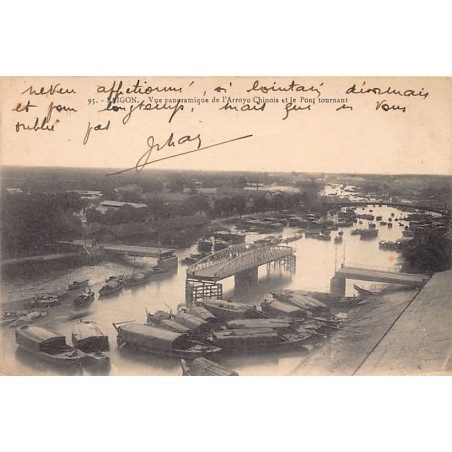 neveu affectionné, si lointain désormais
95. - SAIGON. - Vue panoramique de l'Arroyo Chinois et le Pont tournant
et pour longtemps, mais qui ne vous
oublie pas